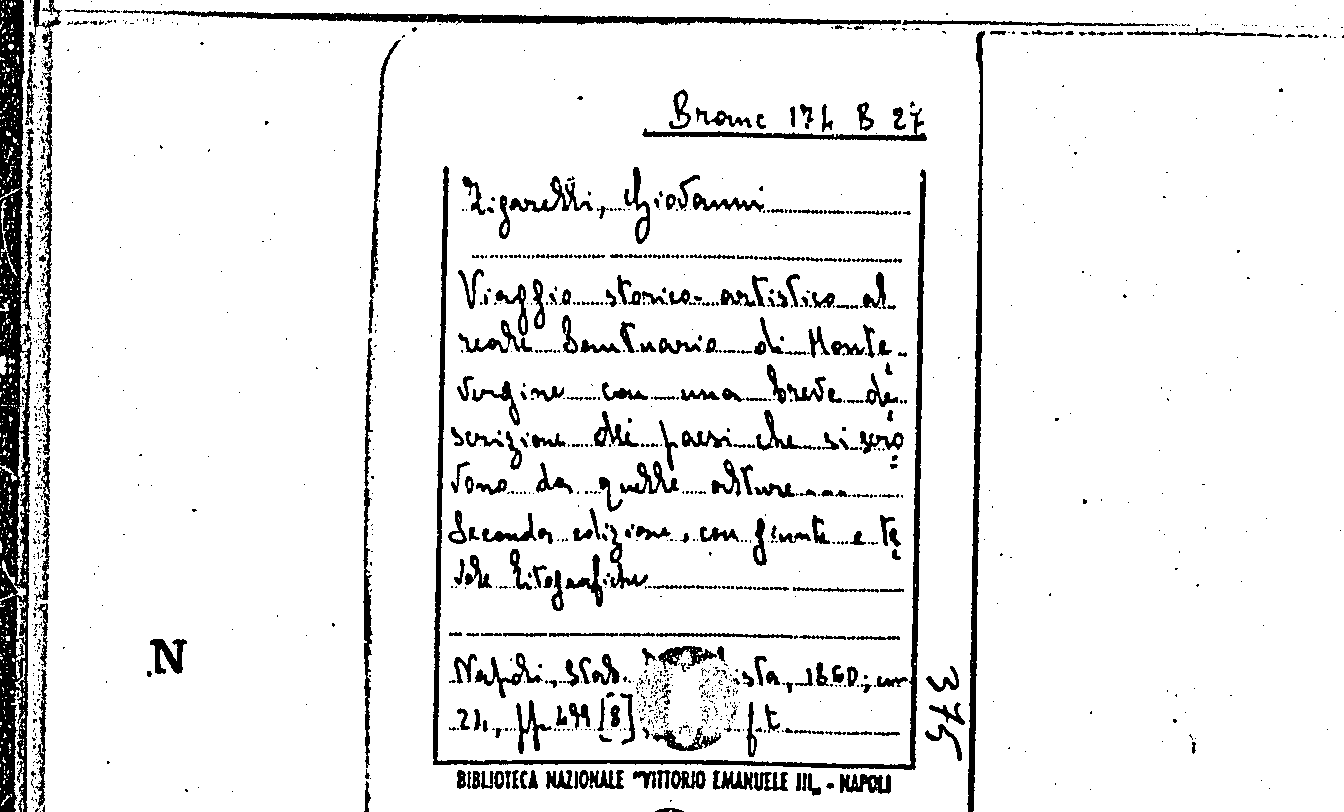 Branc 174 B 27
Zigarelli, Giovanni
Viaggio storico-artistico al
reale Santuario di Monte-
vergine con una breve de
scrizione dei paesi che si sco
vono da quelle alture....
Seconda edizione, con giunte e ta
vole litografiche
Napoli, Stab. ista, 1860; cm
21, pp. 499 [8] f.t.
375
N
BIBLIOTECA NAZIONALE "VITTORIO EMANUELE III„ - NAPOLI